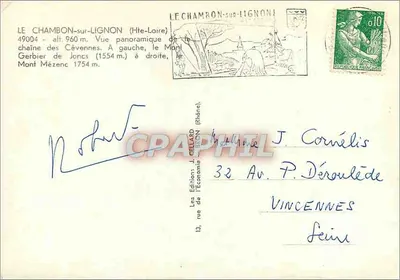 LE CHAMBON-sur-LIGNON (Hte-Loire)
49004 - alt. 960 m. Vue panoramique de la
chaîne des Cévennes. A gauche, le Mont
Gerbier de Joncs (1554 m.) à droite, le
Mont Mézenc 1754 m.
LE CHAMBON-sur-LIGNON
0,10
Robert
CPAPHIL
Les Éditions J. CELLARD
13, rue de l'Économie
BRON (Rhône).
Madame J. Cornélis
32 Av. P. Déroulède
VINCENNES
Seine